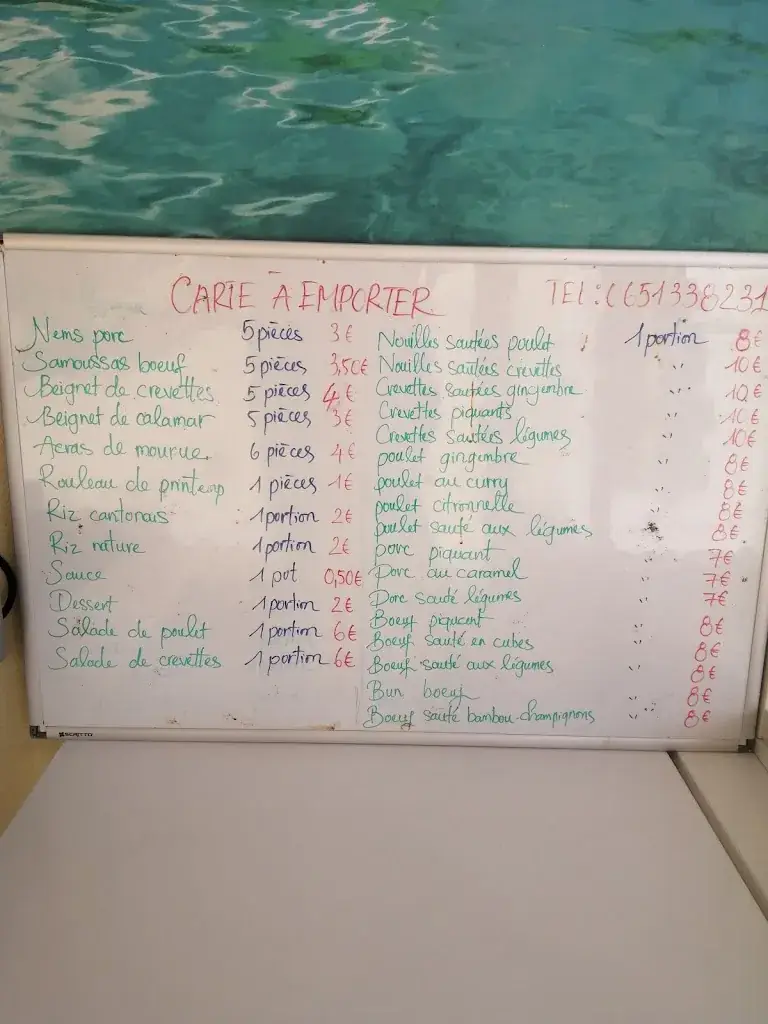 CARTE À EMPORTER
TEL : 0651338231
Nems porc 5 pièces 3€
Samoussas boeuf 5 pièces 3,50€
Beignet de crevettes 5 pièces 4€
Beignet de calamar 5 pièces 3€
Acras de mourue 6 pièces 4€
Rouleau de printemp 1 pièces 1€
Riz cantonais 1 portion 2€
Riz nature 1 portion 2€
Sauce 1 pot 0,50€
Dessert 1 portion 2€
Salade de poulet 1 portion 6€
Salade de crevettes 1 portion 6€
Nouilles sautées poulet 1 portion 8€
Nouilles sautées crevettes " 10€
Crevettes sautées gingembre " 10€
Crevettes piquants " 10€
Crevettes sautées légumes " 10€
poulet gingembre " 8€
poulet au curry " 8€
poulet citronnelle " 8€
poulet sauté aux légumes 8€
porc piquant " 7€
Porc au caramel " 7€
Porc sauté légumes " 7€
Boeuf piquant " 8€
Boeuf sauté en cubes " 8€
Boeuf sauté aux légumes " 8€
Bun boeuf " 8€
Boeuf sauté bambou-champignons " 8€
SCRITTO